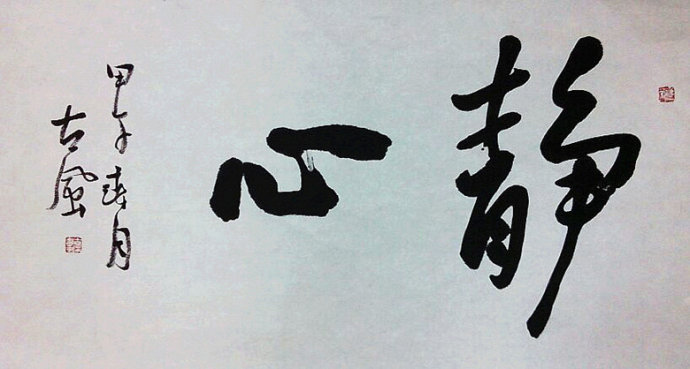 静心
甲午春月
古風